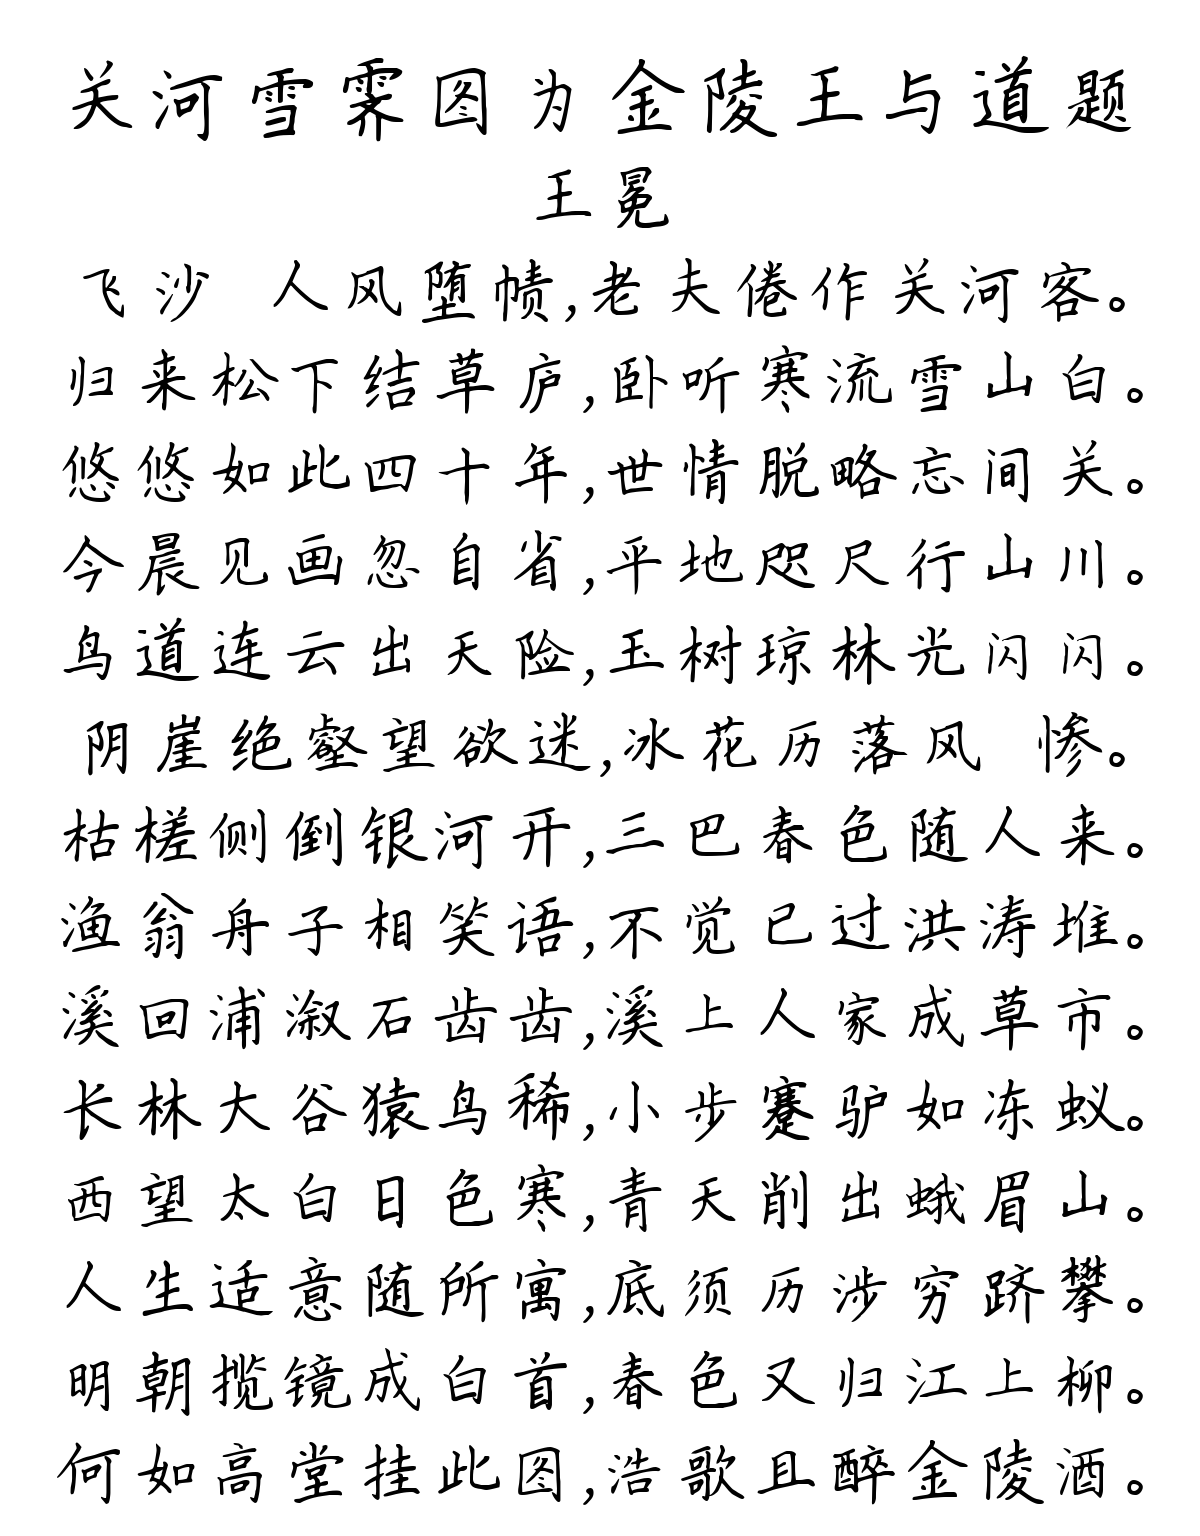 关河雪霁图为金陵王与道题
王冕
飞沙 人风堕帻,老夫倦作关河客。
归来松下结草庐,卧听寒流雪山白。
悠悠如此四十年,世情脱略忘间关。
今晨见画忽自省,平地咫尺行山川。
鸟道连云出天险,玉树琼林光闪闪。
阴崖绝壑望欲迷,冰花历落风 惨。
枯槎侧倒银河开,三巴春色随人来。
渔翁舟子相笑语,不觉已过洪涛堆。
溪回浦溆石齿齿,溪上人家成草市。
长林大谷猿鸟稀,小步蹇驴如冻蚁。
西望太白日色寒,青天削出蛾眉山。
人生适意随所寓,底须历涉穷跻攀。
明朝揽镜成白首,春色又归江上柳。
何如高堂挂此图,浩歌且醉金陵酒。